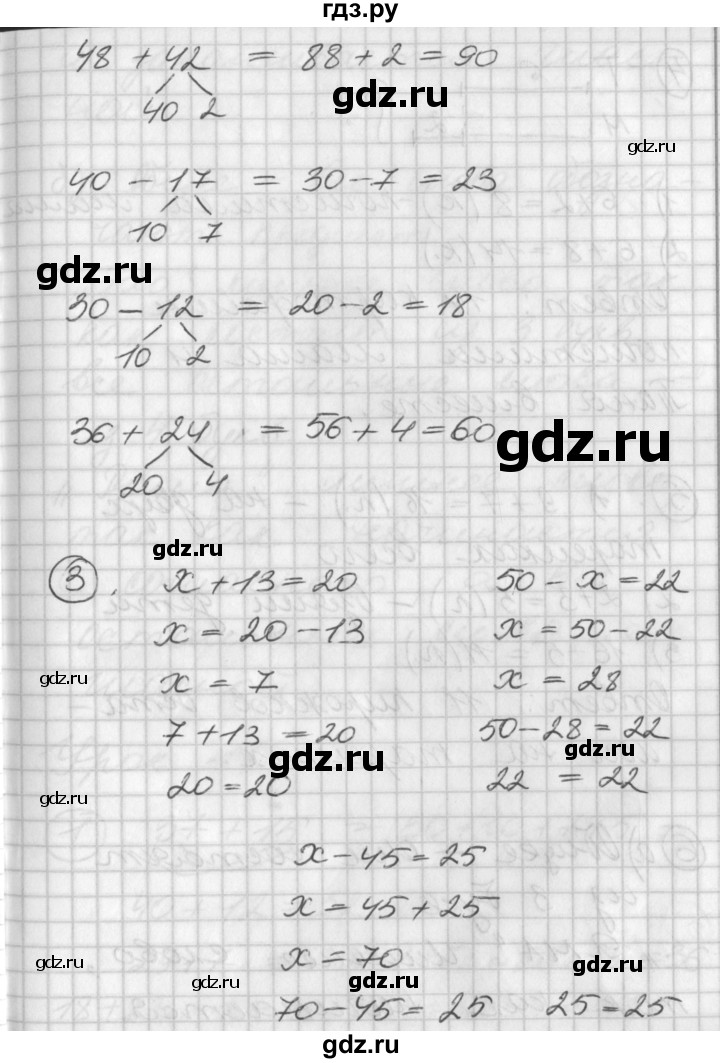 гдз.ру
48 + 42 = 88 + 2 = 90
40 2
gdz.ru
gdz.ru
40 - 17 = 30 - 7 = 23
10 7
gdz.ru
30 - 12 = 20 - 2 = 18
10 2
36 + 24 = 56 + 4 = 60
gdz.ru
20 4
gdz.ru
3. x + 13 = 20 50 - x = 22
x = 20 - 13 x = 50 - 22
gdz.ru
x = 7 x = 28
7 + 13 = 20 50 - 28 = 22
gdz.ru gdz.ru
20 = 20 22 = 22
gdz.ru
x - 45 = 25
x = 45 + 25
x = 70
gdz.ru gdz.ru
gdz.ru gdz.ru
70 - 45 = 25 25 = 25
гдз.ру